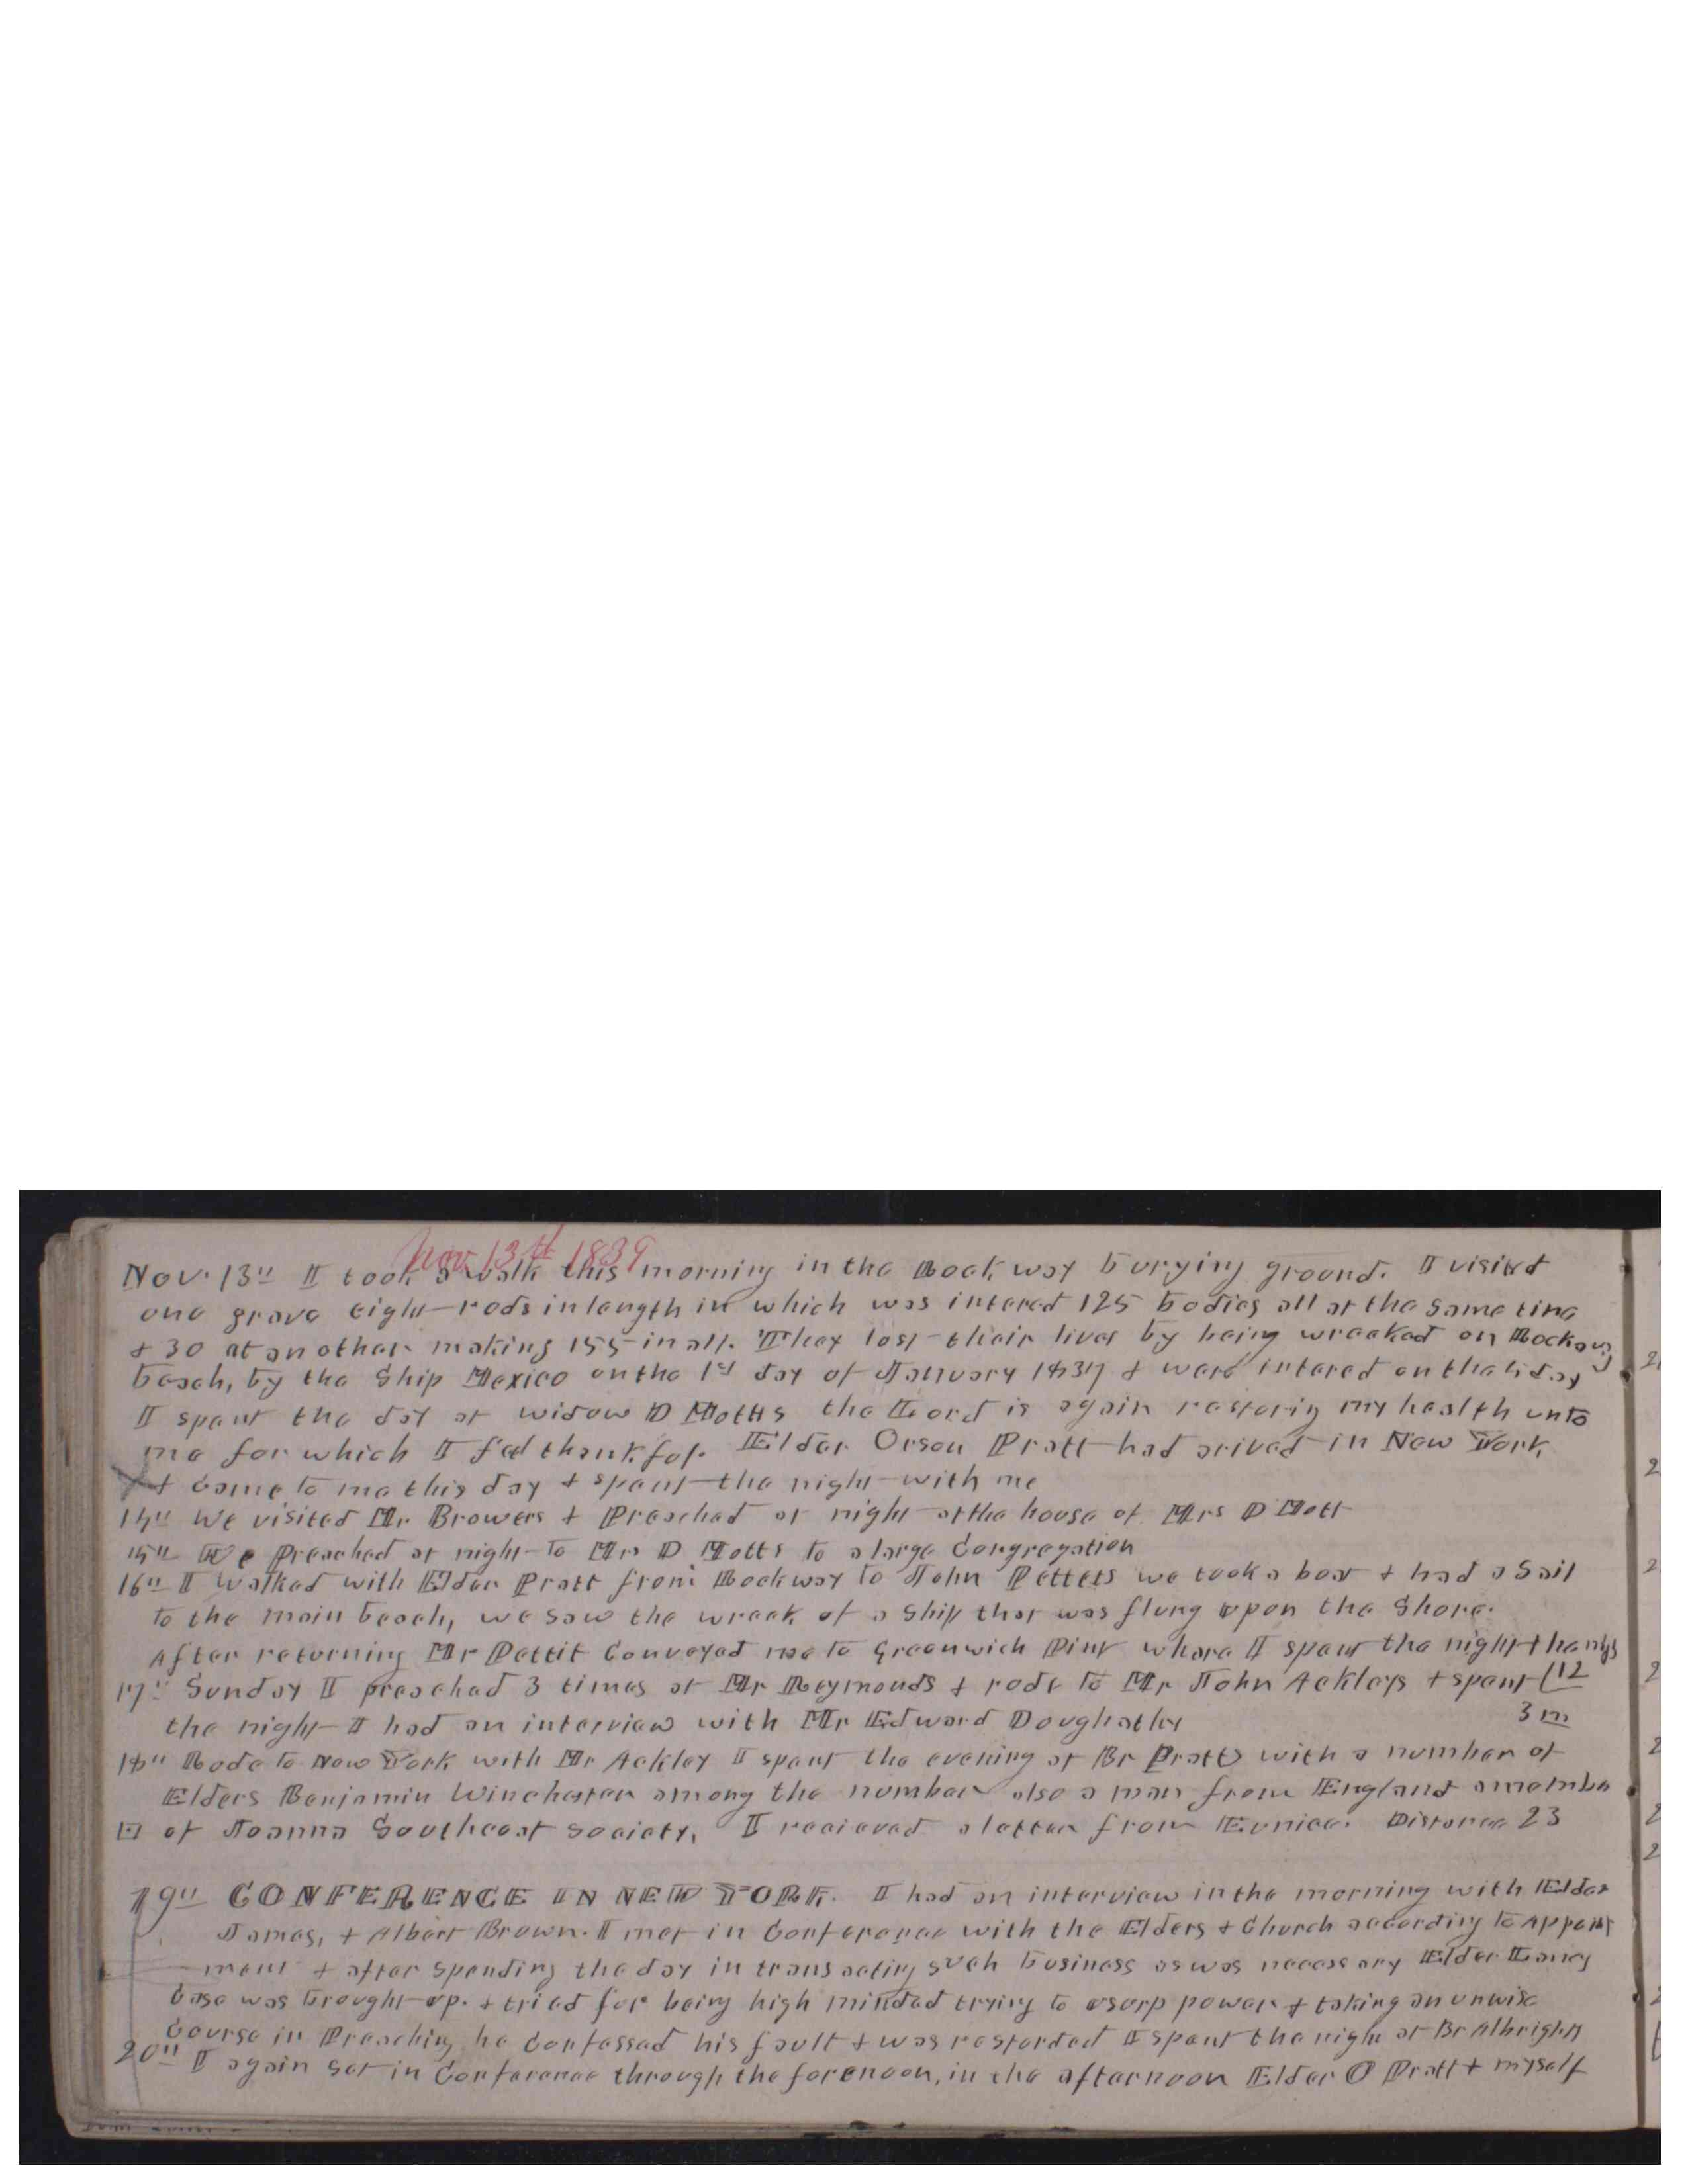 Nov. 13th 1839
Nov. 13" I took a walk this morning in the Rockway burying ground. I visited
one grave eight rods in length in which was intered 125 bodies all at the same time
& 30 at another making 155 in all. They lost their lives by being wreaked on Rockaway
beach, by the Ship Mexico on the 1st day of January 1837 & were intered on the day
I spent the day at widow D Motts the Lord is again restoring my health unto
me for which I feel thankful. Elder Orson Pratt had arived in New York
& came to me this day & spent the night with me
14" We visited Mr Browers & Preached at night at the house of Mrs D Mott
15" We preached at night to Mrs D Motts to a large Congregation
16" I walked with Elder Pratt from Rockway to John Pettets we took a boat & had a Sail
to the main beach, we saw the wreak of a Ship that was flung upon the Shore.
After returning Mr Pettit Conveyed me to Greenwich Pint where I spent the night
17" Sunday I preached 3 times at Mr Reymonds & rode to Mr John Ackleys & spent 12
the night I had an interview with Mr Edward 3 m
18" Rode to New York with Mr Ackley I spent the evening at Br Pratts with a number of
Elders Benjamin Winchester among the number also a man from England a member
of Joanna Southcoat Society, I recieved a letter from Eunice. Distance 23
19" CONFERENCE IN NEW YORK. I had an interview in the morning with Elder
James, & Albert Brown. I met in Conference with the Elders & Church according to Appoint
ment & after spending the day in transacting such business as was necessary Elder Lanes
Case was brought up. & tried for being high minded trying to usurp power & taking an unwise
Course in Preaching he Confessed his fault & was restorded I spent the night at Br Albrights
20" I again set in Conference through the forenoon, in the afternoon Elder O Pratt & myself